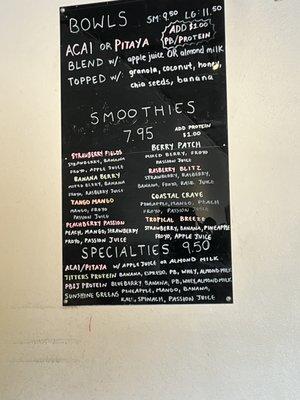 BOWLS SM: 9.50 LG: 11.50
ACAI OR PITAYA
ADD $1.00
PB/PROTEIN
BLEND W/ apple juice OR almond milk
TOPPED W/ granola, coconut, honey,
chia seeds, banana
SMOOTHIES
7.95
ADD PROTEIN
$1.00
STRAWBERRY FIELDS
STRAWBERRY, BANANA
FROYO, APPLE JUICE
BANANA BERRY
MIXED BERRY, BANANA
FROYO, RASBERRY JUICE
TANGO MANGO
MANGO, FROYO
PASSION JUICE
PEACHBERRY PASSION
PEACH, MANGO, STRAWBERRY
FROYO, PASSION JUICE
BERRY PATCH
MIXED BERRY, FROYO
PASSION JUICE
RASBERRY BLITZ
STRAWBERRY, RASBERRY,
BANANA, FROYO, RASB. JUICE
COASTAL CRAVE
PINEAPPLE, MANGO, PEACH
FROYO, PASSION JUICE
TROPICAL BREEZE
STRAWBERRY, BANANA, PINEAPPLE
FROYO, APPLE JUICE
SPECIALTIES 9.50
ACAI/PITAYA W/ APPLE JUICE OR ALMOND MILK
JITTERS PROTEIN BANANA, ESPRESO, PB, WHEY, ALMOND MILK
PB&J PROTEIN BLUEBERRY, BANANA, PB, WHEY, ALMOND MILK
SUNSHINE GREENS PINEAPPLE, MANGO, BANANA,
KALE, SPINACH, PASSION JUICE